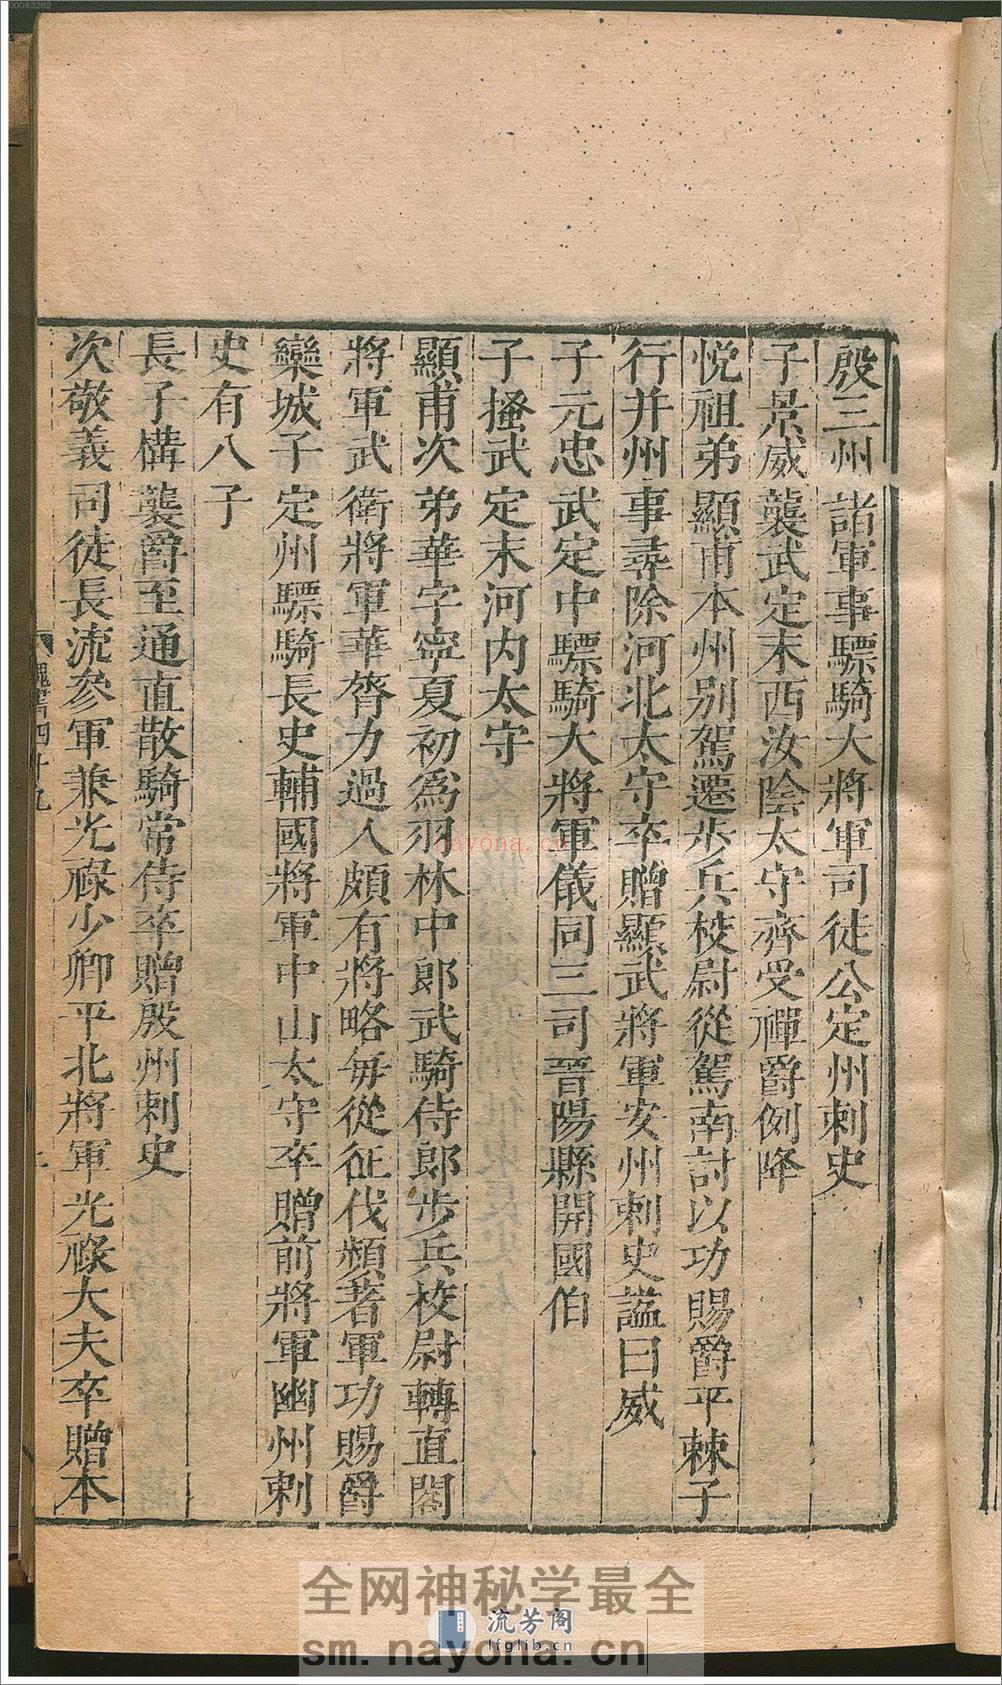 殷三州諸軍事驃騎大將軍司徒公定州刺史
子景威襲武定末西汝陰太守齊受禪爵例降
悦祖弟顯甫本州别駕遷步兵校尉從駕南討以功賜爵平棘子
行并州事尋除河北太守卒贈顯武將軍安州刺史謚曰威
子元忠武定中驃騎大將軍儀同三司晉陽縣開國伯
子搔武定末河内太守
顯甫次弟華字寧夏初爲羽林中郎武騎侍郎步兵校尉轉直閤
將軍武衛將軍華膂力過人頗有將略每從征伐頻著軍功賜爵
欒城子定州驃騎長史輔國將軍中山太守卒贈前將軍幽州刺
史有八子
長子構襲爵至通直散騎常侍卒贈殷州刺史
次敬義司徒長流參軍兼光祿少卿平北將軍光祿大夫卒贈本
魏書四十九
00063282
nayona.cn
全网神秘学最全
流芳阁
lfglib.cn
sm.nayona.cn